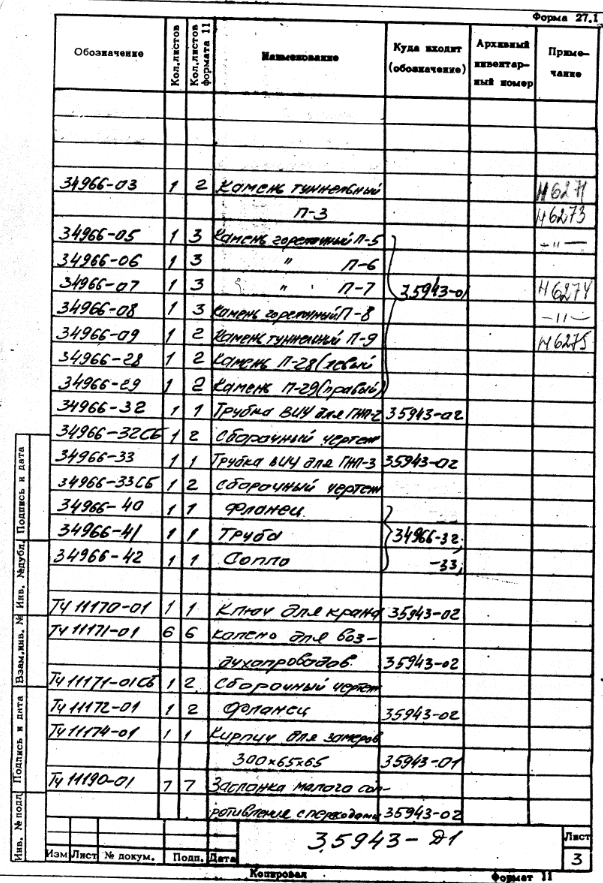 Форма 27.1
Обозначение Кол.листов Кол.листов формата 11 Наименование Куда входит (обозначение) Архивный инвентарный номер Примечание
34966-03 1 2 Камень туннельный Н6271
П-3 Н6273
34966-05 1 3 Камень горелочный П-5 -"-
34966-06 1 3 " П-6
34966-07 1 3 " П-7 35943-01 Н6274
34966-08 1 3 Камень горелочный П-8 -"-
34966-09 1 2 Камень туннельный П-9 Н6275
34966-28 1 2 Камень П-28 (левый
34966-29 1 2 Камень П-29 (правый)
34966-32 1 1 Трубка ВИУ для ГНП-2 35943-02
34966-32СБ 1 2 Сборочный чертеж
34966-33 1 1 Трубка ВИУ для ГНП-3 35943-02
34966-33СБ 1 2 Сборочный чертеж
34966-40 1 1 Фланец
34966-41 1 1 Труба 34966-32;
34966-42 1 1 Сопло -33;
ТЧ 11170-01 1 1 Ключ для крана 35943-02
ТЧ 11171-01 6 6 Колено для воз-
духопроводов 35943-02
ТЧ 11171-01СБ 1 2 Сборочный чертеж
ТЧ 11172-01 1 2 Фланец 35943-02
ТЧ 11174-01 1 1 Кирпич для замеров
300х65х65 35943-01
ТЧ 11190-01 7 7 Заслонка малого соп-
ротивление с переходами 35943-02
35943-Д1
Лист
3
Изм Лист № докум. Подп. Дата
Инв. № подл. Подпись и дата Взам.инв. № Инв. №дубл. Подпись и дата
Копировал Формат 11